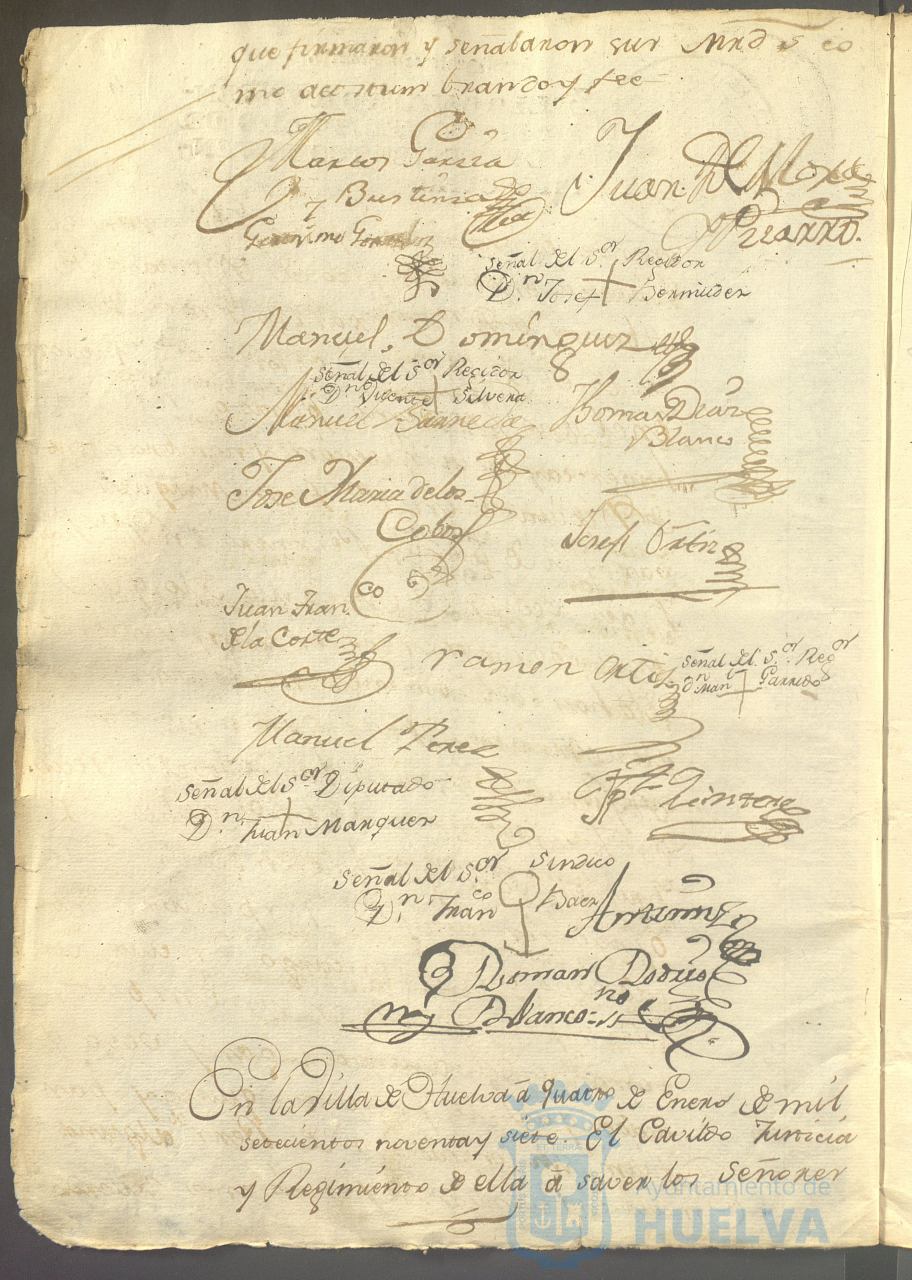 que firmaron y señalaron sus Mrds co
mo acostumbran doy fee
Marcos Garcia
y Bustinza
Juan De Mora
y Pizarro.
Geronimo Gonzalez
señal del Sor Regidor
Dn Josef Bermudez
Manuel Dominguez
señal del Sor Regidor
Dn Vicente Silvera
Manuel Barreda
Thomas Diaz
Blanco
Jose Maria de los
Cobos
Josef Ortiz
Juan Franco
de la Corte
ramon Ortis
señal del Sor Regor
dn Manl Garrido
Manuel Perez
señal del Sor Diputado
Dn Juan Marquez
Quintero
señal del Sor Sindico
Dn Franco Baez
Ante mi
Roman Rodrigz
Blanco
En la Villa de Huelva á quatro de Enero de mil
setecientos noventa y siete. El Cavildo Justicia
y Regimiento de ella á saver los Señores
Ayuntamiento de
HUELVA